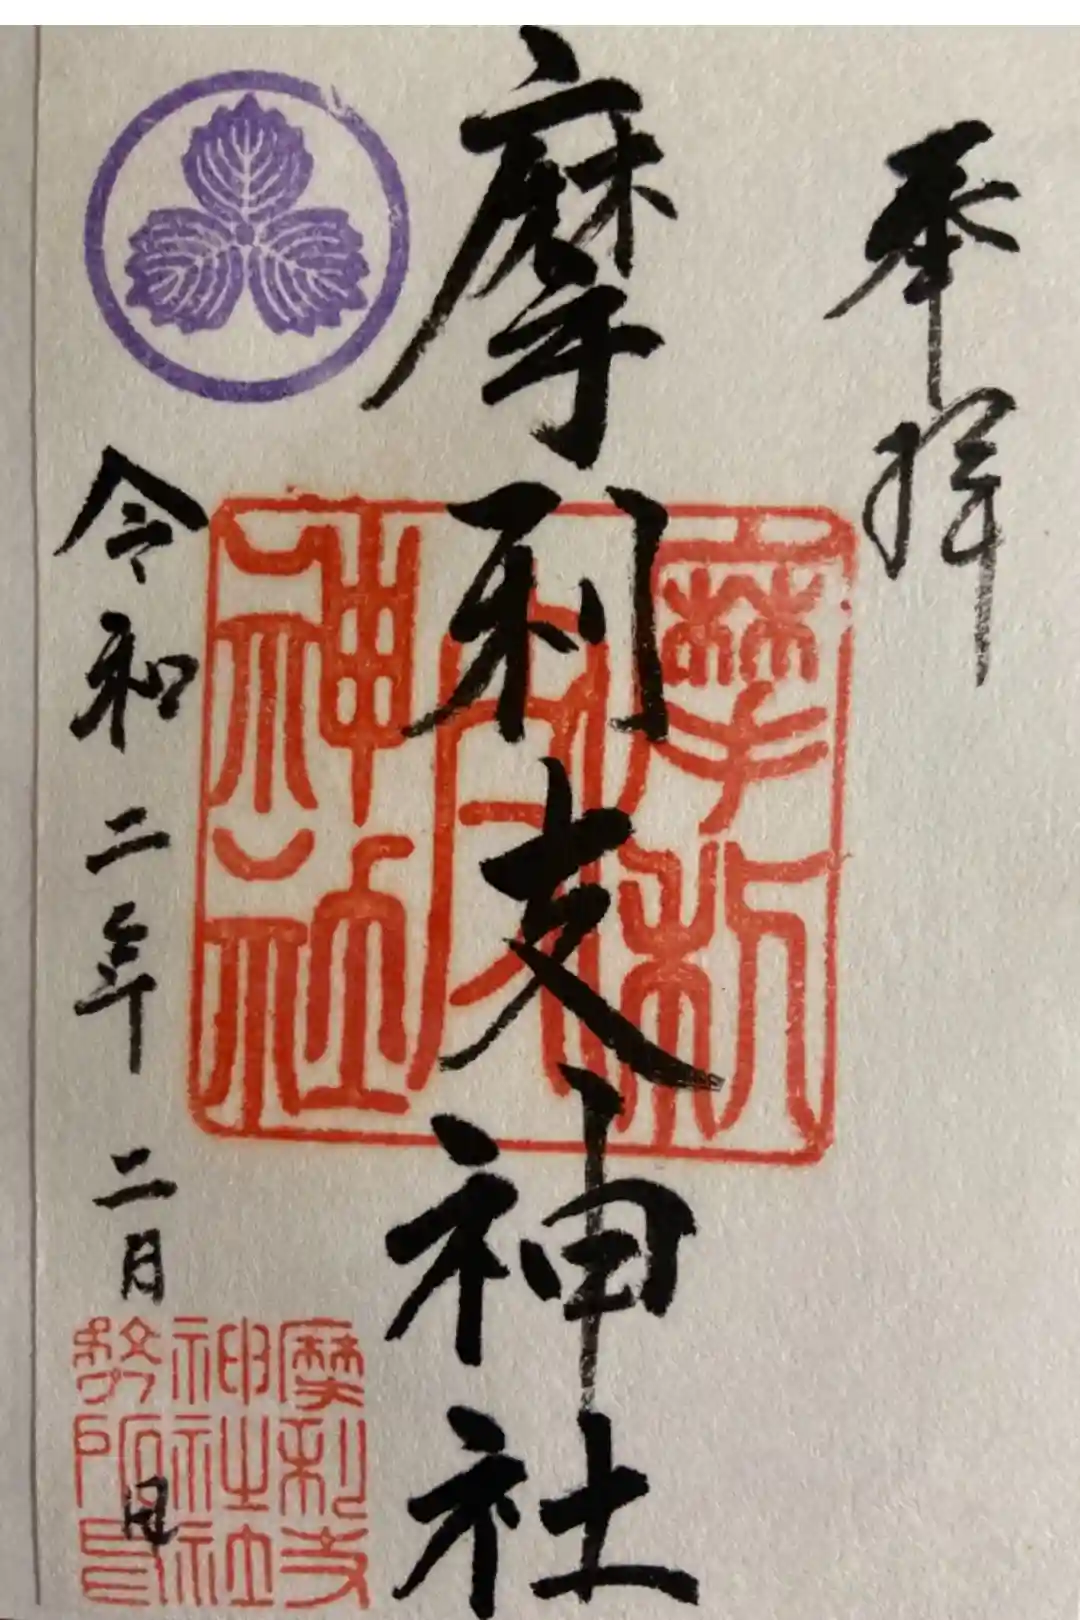 奉拝
摩利支神社
令和二年 二月 日
摩利
神社
摩利支
神社社
務所印